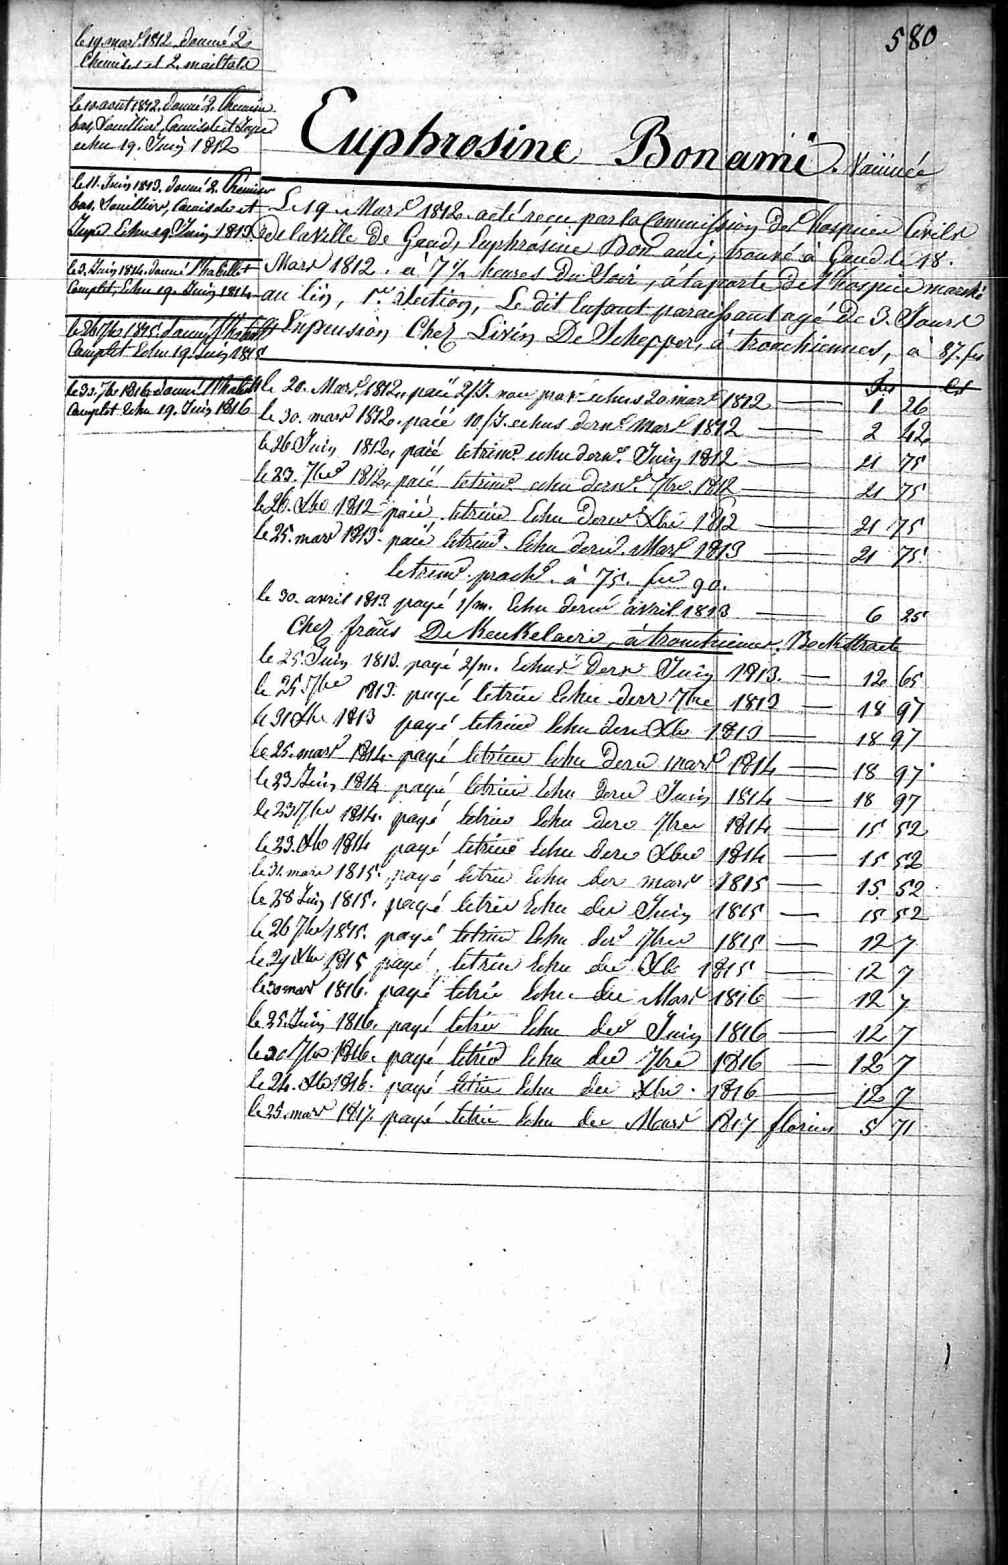 580
le 19 mars 1812 donné 2
Chemises et 2 maillots
le 10 aout 1812 donné 2 Chemise
bas, Soullier, Camisole et Jupe
echu 19. Juin 1812
le 11. Juin 1813. donné 2 Chemise
bas, Soullier, Camisole et
Jupe Echu 19 Juin 1813
le 3. Juin 1814. donné l'habillet
Complet, Echu 19. Juin 1814
le 26 7bre 1815. donné l'habillt
Complet Echu 19. Juin 1815
le 30. 7bre 1816 donné l'habillt
Complet Echu 19. Juin 1816
Euphrosine Bonami. Vaccinée
Le 19. Mars 1812. acté reçu par la Commission des hospices Civils
de la Ville de Gand, Euphrosine Bon ami, trouvé à Gand le 18.
Mars 1812. à 7 1/2 heures du Soir, à la porte de l'hospice marché
au lin, 1re Section, Le dit Enfant paraissant agé de 3. Jours
En pension Chez Livin De Schepper, à tronchiennes, à 87. fs
fs Cs
le 20. Mars 1812. paié 2/3. echus 20 mars 1812 1 26
le 30. mars 1812. paié 10/J. echus dern. Mars 1812 2 42
le 26 Juin 1812. paié letrim. echu dern. Juin 1812 21 75
le 23. 7bre 1812. paié letrim. echu dern. 7bre 1812 21 75
le 26. Xbre 1812 paié letrim Echu dern Xbre 1812 21 75
le 25. mars 1813. paié letrim. Echu dern. Mars 1813 21 75
letrim. proch. à 75. fcs 90.
le 30. avril 1813 payé 1/m. Echu dern avril 1813 6 25
Chez frans De Keukelaere, à tronchiennes,
le 25 Juin 1813. payé 2/m. Echus dern Juin 1813. 12 65
le 25. 7bre 1813. payé letrim Echu dern 7bre 1813 18 97
le 31 Xbre 1813 payé letrim Echu dern Xbre 1813 18 97
le 25. mars 1814. payé letrim Echu dern mars 1814 18 97
le 23 Juin 1814 payé letrim Echu dern Juin 1814 18 97
le 23 7bre 1814. payé letrim Echu dern 7bre 1814 15 52
le 23. Xbre 1814 payé letrim Echu dern Xbre 1814 15 52
le 31 mars 1815. payé letrim Echu der mars 1815 15 52
le 28 Juin 1815. payé letrim Echu der Juin 1815 15 52
le 26 7bre 1815. payé letrim Echu der 7bre 1815 12 7
le 29 Xbre 1815 payé letrim Echu der Xbre 1815 12 7
le 30 mars 1816. payé letrim Echu der Mars 1816 12 7
le 25. Juin 1816. payé letrim Echu der Juin 1816 12 7
le 20 7bre 1816. payé letrim Echu der 7bre 1816 12 7
le 24. Xbre 1816. payé letrim Echu der Xbre. 1816 12 7
le 25. mars 1817. payé letrim Echu der Mars 1817 florins 5 71